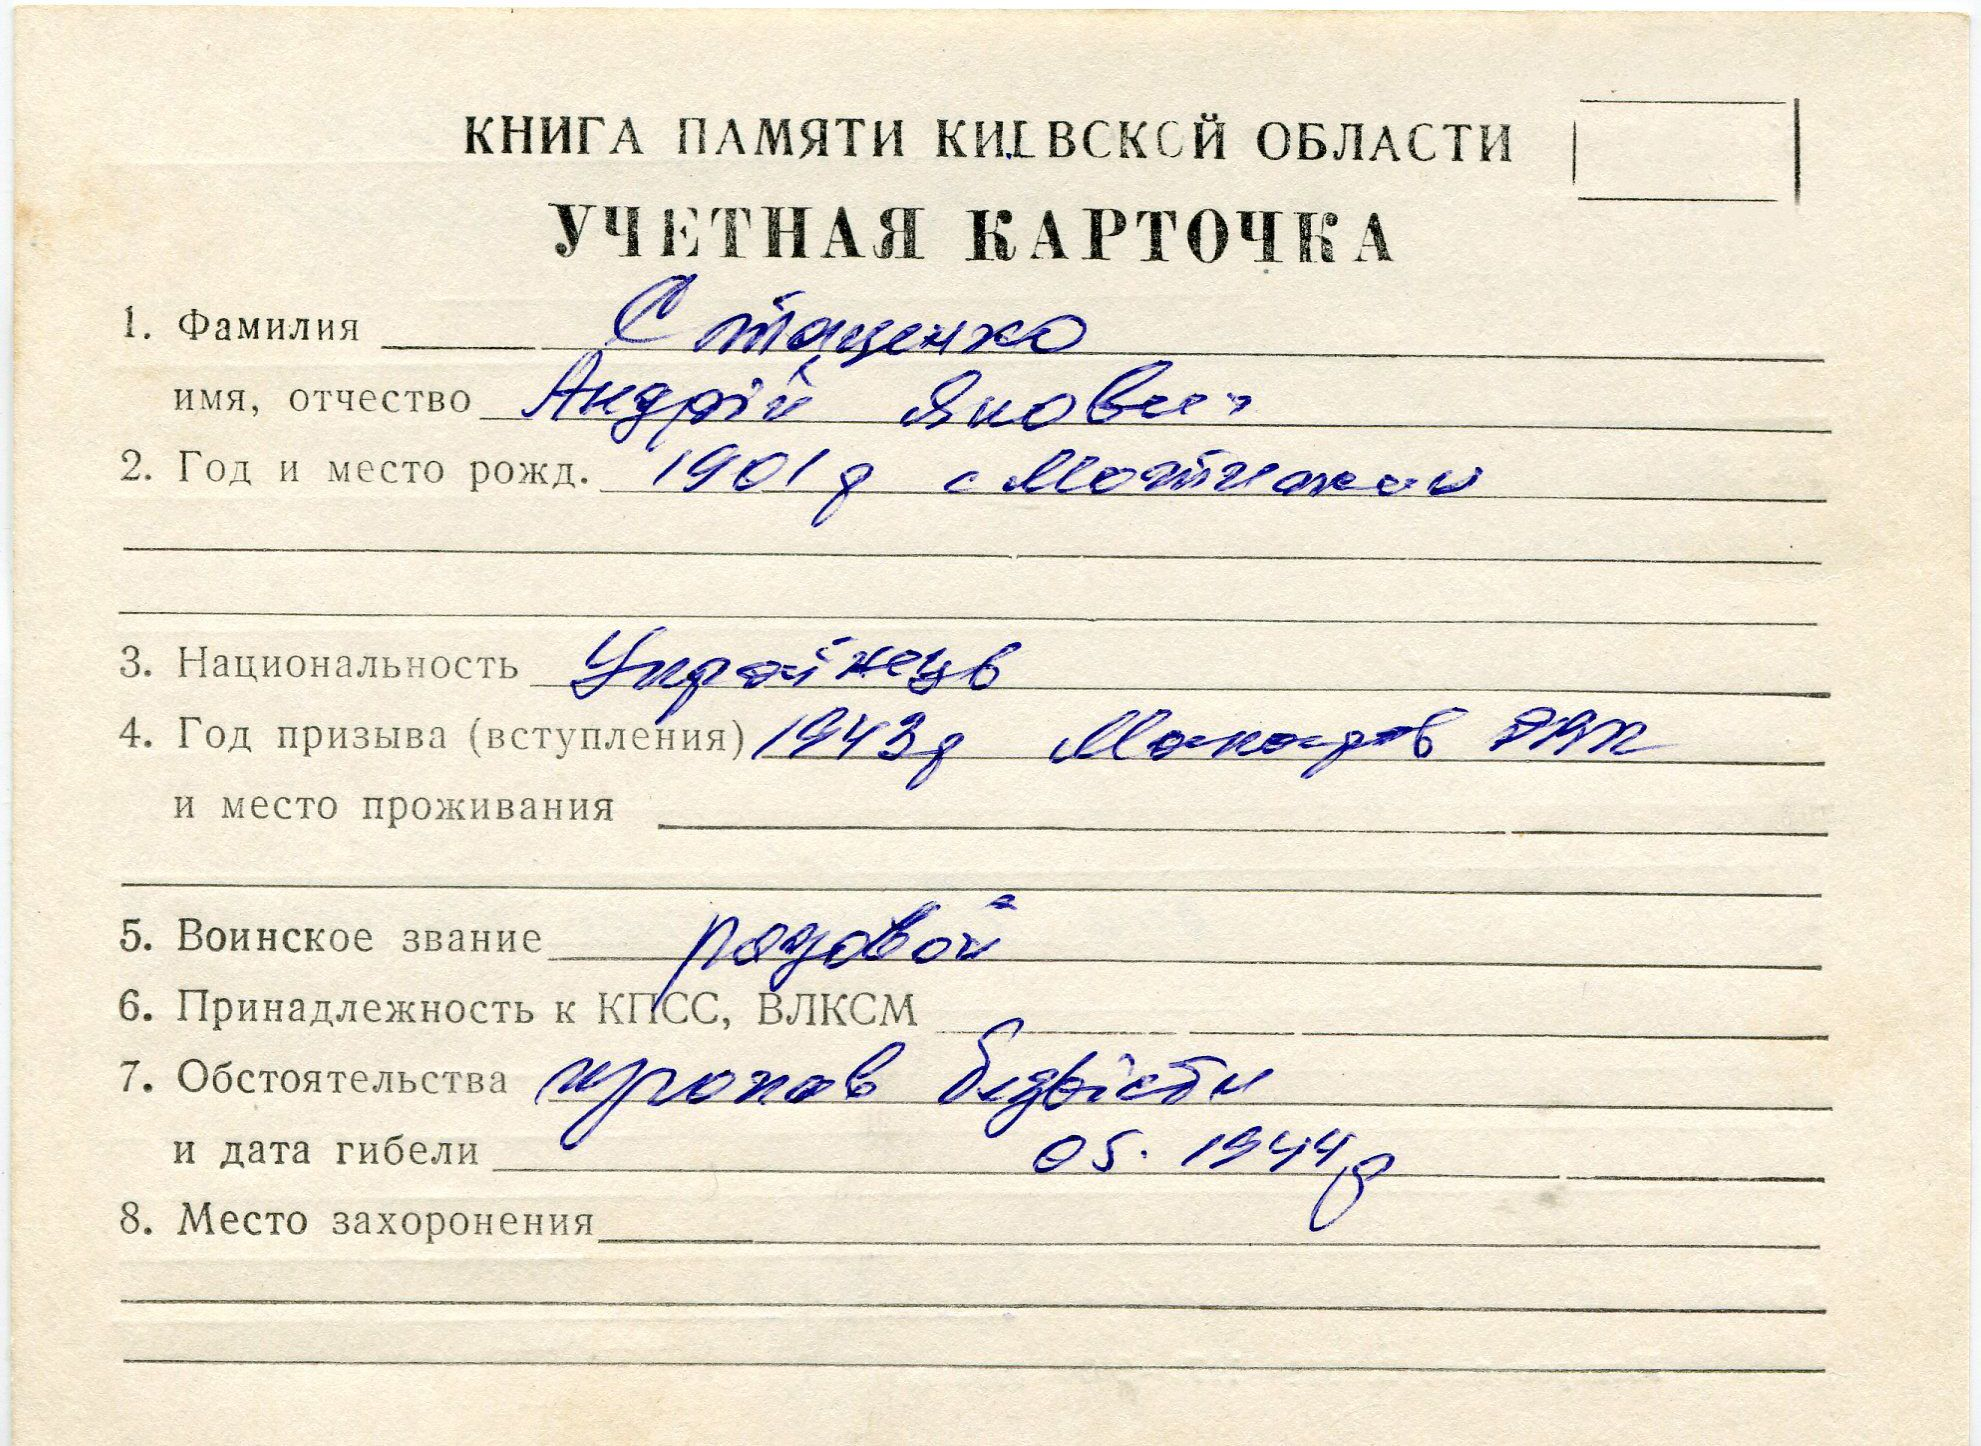 КНИГА ПАМЯТИ КИЕВСКОЙ ОБЛАСТИ
УЧЕТНАЯ КАРТОЧКА
1. Фамилия Стаценко
имя, отчество Андрій Якович
2. Год и место рожд. 1901 р с Мотижин
3. Национальность Українець
4. Год призыва (вступления) 1943 р Макарів РВК
и место проживания
5. Воинское звание рядовой
6. Принадлежность к КПСС, ВЛКСМ
7. Обстоятельства пропав безвісти
и дата гибели 05. 1944 р
8. Место захоронения